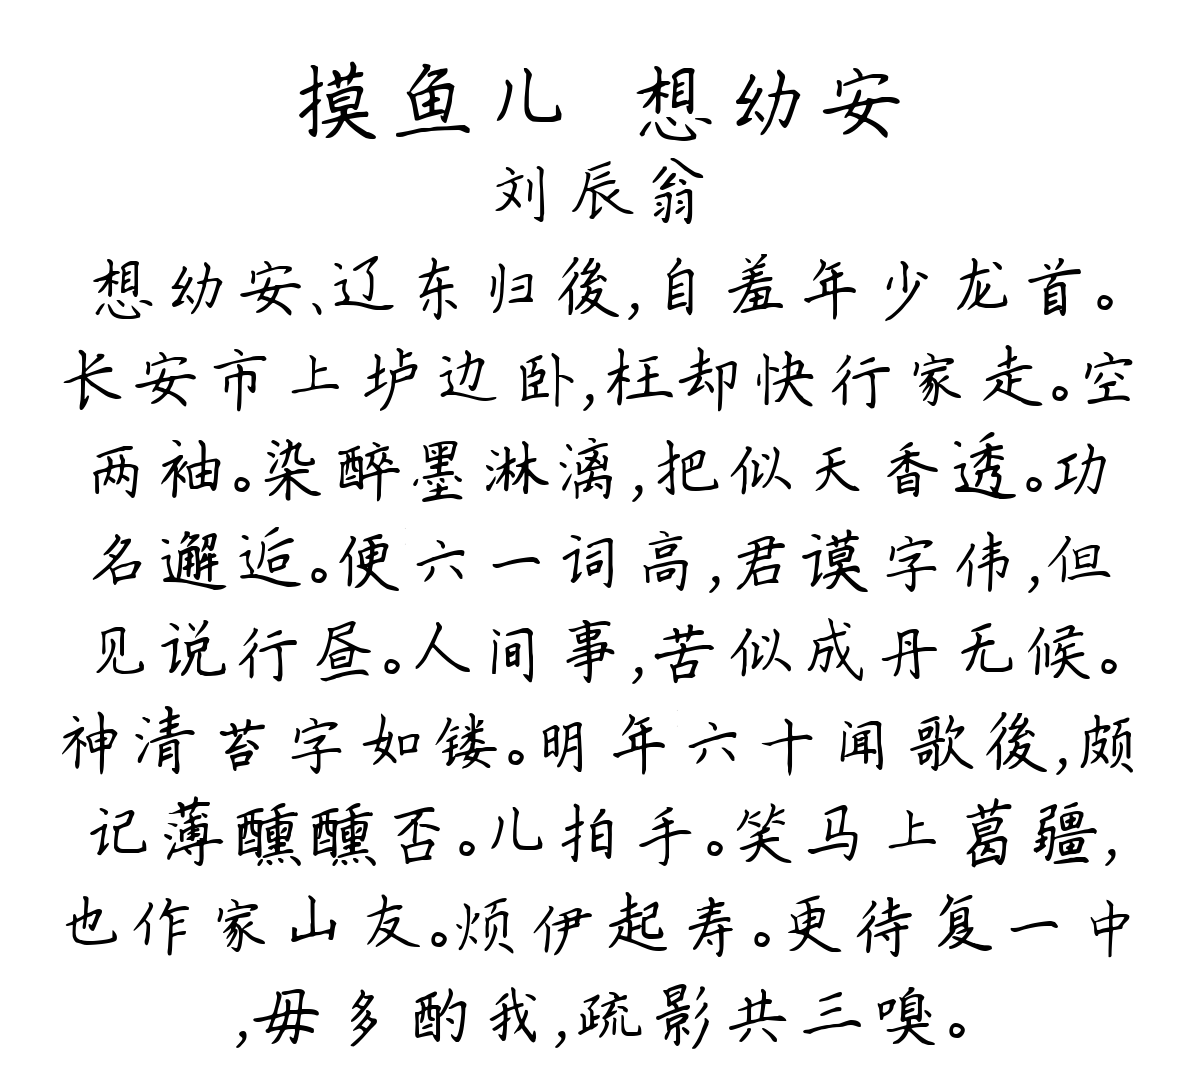 摸鱼儿 想幼安
刘辰翁
想幼安、辽东归後,自羞年少龙首。
长安市上垆边卧,枉却快行家走。空
两袖。染醉墨淋漓,把似天香透。功
名邂逅。便六一词高,君谟字伟,但
见说行昼。人间事,苦似成丹无候。
神清苔字如镂。明年六十闻歌後,颇
记薄醺醺否。儿拍手。笑马上葛疆,
也作家山友。烦伊起寿。更待复一中
,毋多酌我,疏影共三嗅。